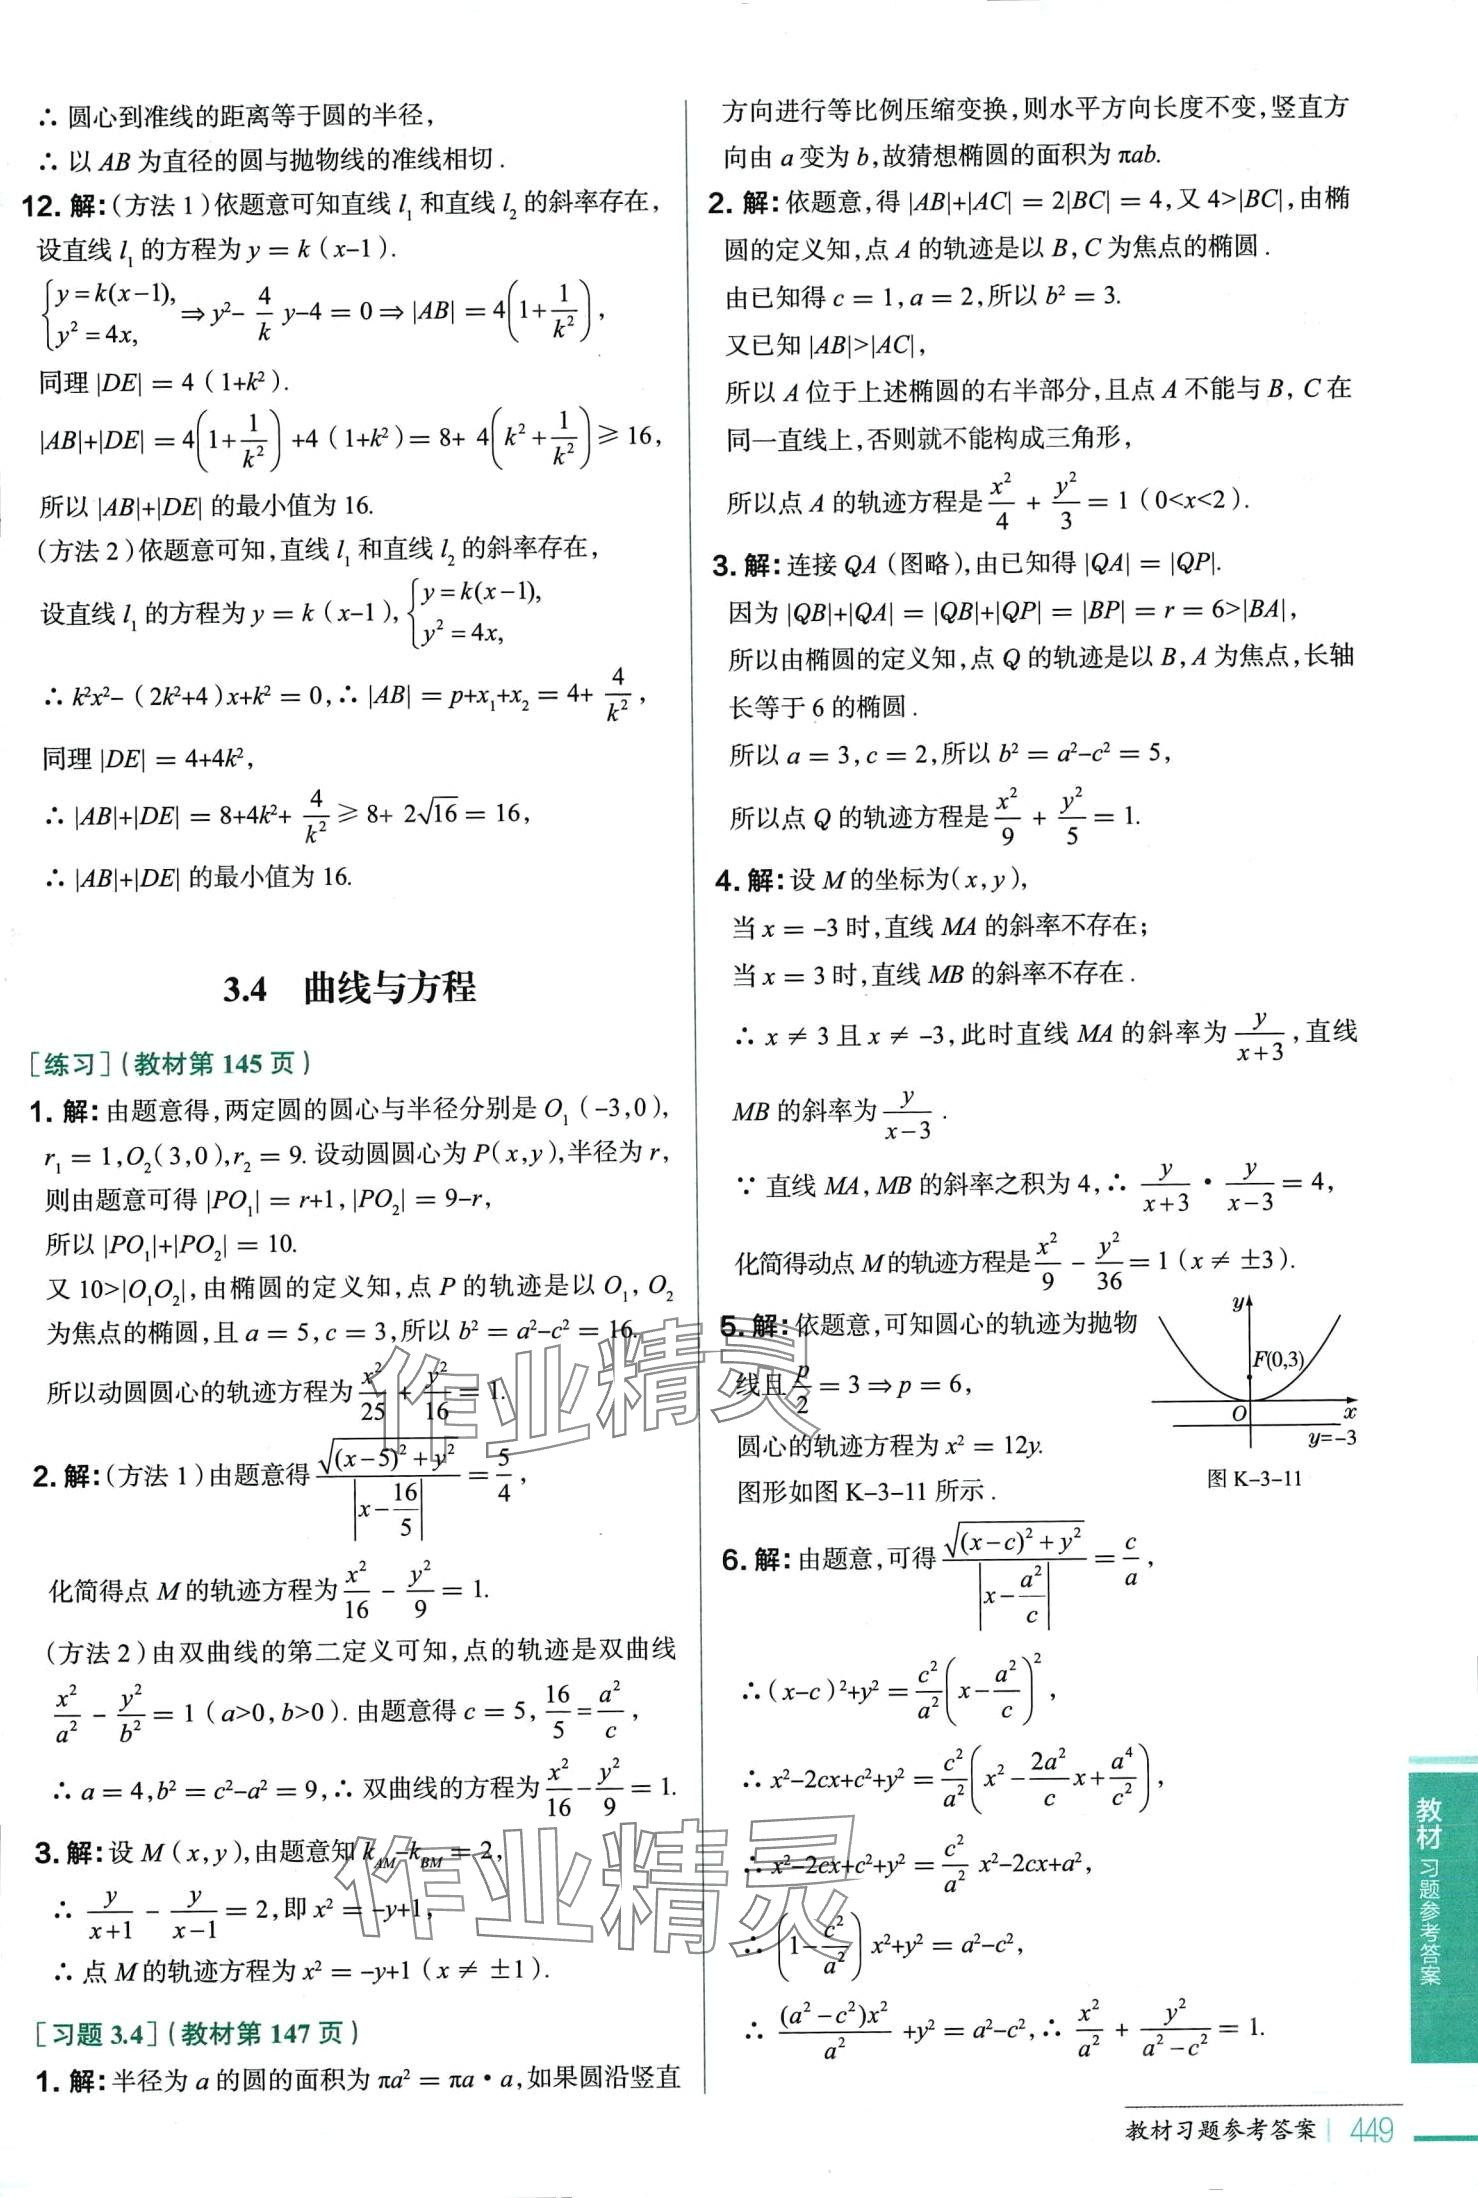 ∴ 圆心到准线的距离等于圆的半径,
∴ 以 AB 为直径的圆与抛物线的准线相切.
12. 解:(方法 1)依题意可知直线 l₁ 和直线 l₂ 的斜率存在,
设直线 l₁ 的方程为 y = k(x-1).
{y=k(x-1), y²=4x, ⇒ y²-(4/k)y-4=0 ⇒ |AB| = 4(1+1/k²),
同理 |DE| = 4(1+k²).
|AB|+|DE| = 4(1+1/k²)+4(1+k²)= 8+4(k²+1/k²) ≥ 16,
所以 |AB|+|DE| 的最小值为 16.
(方法 2)依题意可知,直线 l₁ 和直线 l₂ 的斜率存在,
设直线 l₁ 的方程为 y = k(x-1), {y=k(x-1), y²=4x,
∴ k²x²-(2k²+4)x+k² = 0,∴ |AB| = p+x₁+x₂ = 4+4/k²,
同理 |DE| = 4+4k²,
∴ |AB|+|DE| = 8+4k²+4/k² ≥ 8+2√16 = 16,
∴ |AB|+|DE| 的最小值为 16.
3.4 曲线与方程
[练习](教材第 145 页)
1. 解:由题意得,两定圆的圆心与半径分别是 O₁(-3,0),
r₁ = 1,O₂(3,0),r₂ = 9. 设动圆圆心为 P(x,y),半径为 r,
则由题意可得 |PO₁| = r+1,|PO₂| = 9-r,
所以 |PO₁|+|PO₂| = 10.
又 10>|O₁O₂|,由椭圆的定义知,点 P 的轨迹是以 O₁, O₂
为焦点的椭圆,且 a = 5,c = 3,所以 b² = a²-c² = 16.
所以动圆圆心的轨迹方程为 x²/25 + y²/16 = 1.
2. 解:(方法 1)由题意得 √((x-5)²+y²)/|x-16/5| = 5/4,
化简得点 M 的轨迹方程为 x²/16 - y²/9 = 1.
(方法 2)由双曲线的第二定义可知,点的轨迹是双曲线
x²/a² - y²/b² = 1(a>0,b>0). 由题意得 c = 5, 16/5 = a²/c,
∴ a = 4,b² = c²-a² = 9,∴ 双曲线的方程为 x²/16 - y²/9 = 1.
3. 解:设 M(x,y),由题意知 k_AM-k_BM = 2,
∴ y/(x+1) - y/(x-1) = 2,即 x² = -y+1,
∴ 点 M 的轨迹方程为 x² = -y+1(x ≠ ±1).
[习题 3.4](教材第 147 页)
1. 解:半径为 a 的圆的面积为 πa² = πa·a,如果圆沿竖直
方向进行等比例压缩变换,则水平方向长度不变,竖直方
向由 a 变为 b,故猜想椭圆的面积为 πab.
2. 解:依题意,得 |AB|+|AC| = 2|BC| = 4,又 4>|BC|,由椭
圆的定义知,点 A 的轨迹是以 B, C 为焦点的椭圆.
由已知得 c = 1,a = 2,所以 b² = 3.
又已知 |AB|>|AC|,
所以 A 位于上述椭圆的右半部分,且点 A 不能与 B, C 在
同一直线上,否则就不能构成三角形,
所以点 A 的轨迹方程是 x²/4 + y²/3 = 1(0<x<2).
3. 解:连接 QA(图略),由已知得 |QA| = |QP|.
因为 |QB|+|QA| = |QB|+|QP| = |BP| = r = 6>|BA|,
所以由椭圆的定义知,点 Q 的轨迹是以 B, A 为焦点,长轴
长等于 6 的椭圆.
所以 a = 3,c = 2,所以 b² = a²-c² = 5,
所以点 Q 的轨迹方程是 x²/9 + y²/5 = 1.
4. 解:设 M 的坐标为(x,y),
当 x = -3 时,直线 MA 的斜率不存在;
当 x = 3 时,直线 MB 的斜率不存在.
∴ x ≠ 3 且 x ≠ -3,此时直线 MA 的斜率为 y/(x+3),直线
MB 的斜率为 y/(x-3).
∵ 直线 MA, MB 的斜率之积为 4,∴ y/(x+3) · y/(x-3) = 4,
化简得动点 M 的轨迹方程是 x²/9 - y²/36 = 1(x ≠ ±3).
5. 解:依题意,可知圆心的轨迹为抛物
线且 p/2 = 3 ⇒ p = 6,
圆心的轨迹方程为 x² = 12y.
图形如图 K-3-11 所示.
y
F(0,3)
O
x
y=-3
图 K-3-11
6. 解:由题意,可得 √((x-c)²+y²)/|x-a²/c| = c/a,
∴(x-c)²+y² = c²/a²(x-a²/c)²,
∴ x²-2cx+c²+y² = c²/a²(x²-(2a²/c)x+a⁴/c²),
∴ x²-2cx+c²+y² = (c²/a²)x²-2cx+a²,
∴ (1-c²/a²)x²+y² = a²-c²,
∴ (a²-c²)x²/a² +y² = a²-c²,∴ x²/a² + y²/(a²-c²) = 1.
教材习题参考答案
教材习题参考答案 449
作业精灵
作业精灵